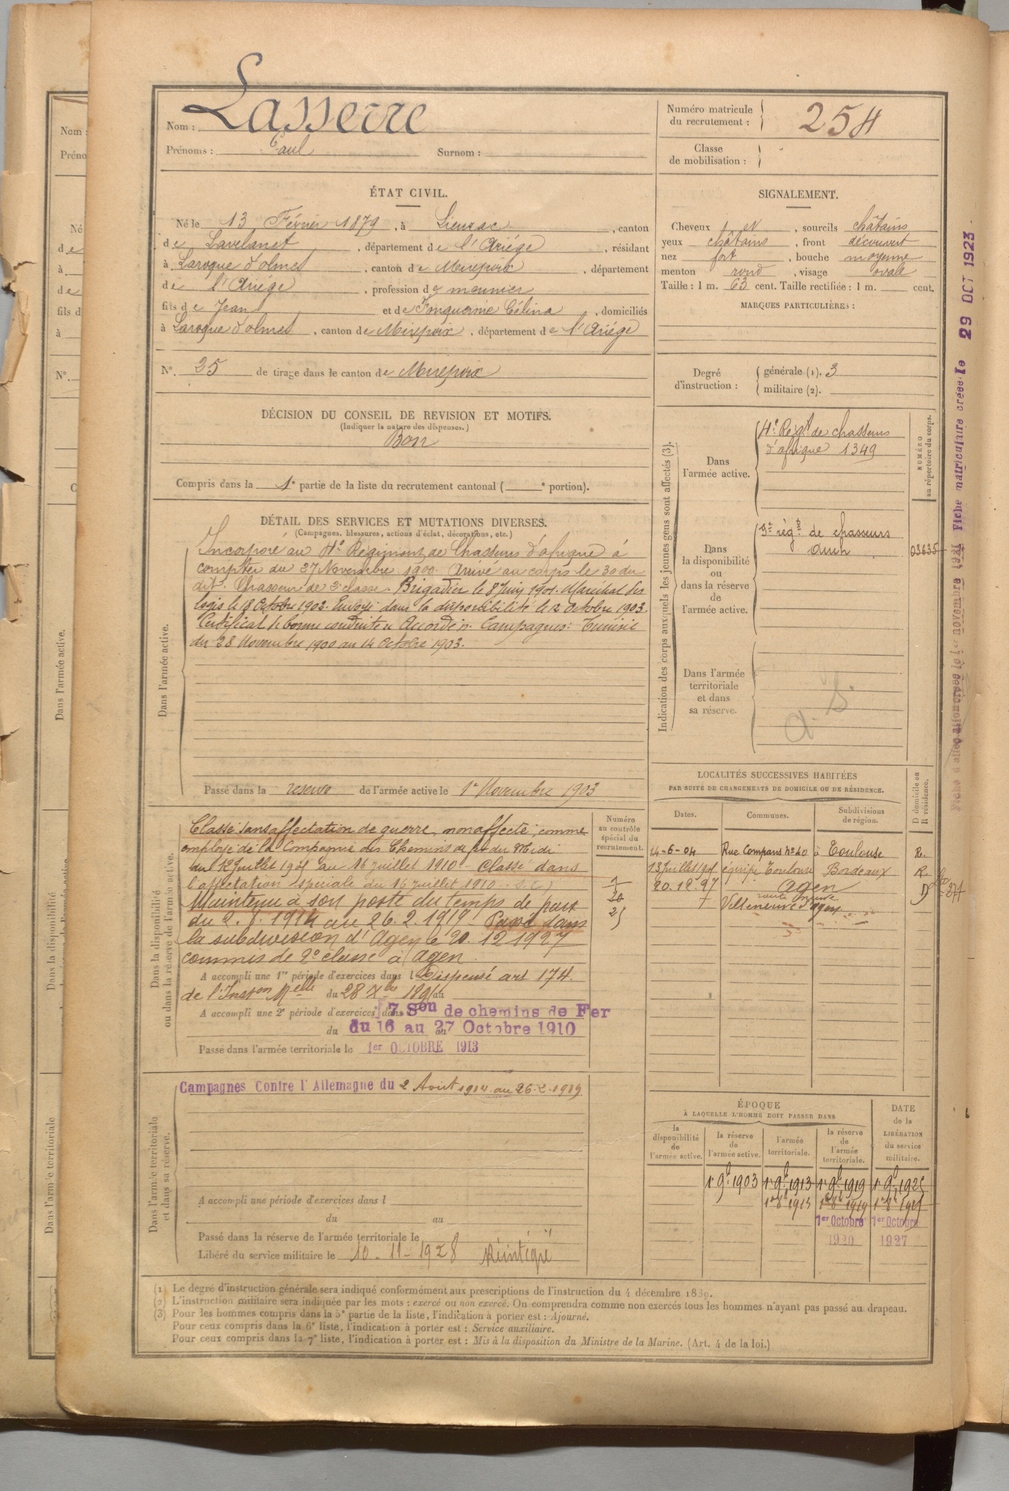 Nom : Lasserre
Prénoms : Paul Surnom :
Numéro matricule du recrutement : 254
Classe de mobilisation :
ÉTAT CIVIL.
Né le 13 Février 1879, à Lieurac, canton
de Lavelanet, département de l'Ariège, résidant
à Laroque d'olmes, canton de Mirepoix, département
de l'Ariège, profession de meunier
fils de Jean et de Célina, domiciliés
à Laroque d'olmes, canton de Mirepoix, département de l'Ariège
N°. 25 de tirage dans le canton de Mirepoix
SIGNALEMENT.
Cheveux et , sourcils châtains
yeux châtains, front découvert
nez fort, bouche moyenne
menton rond, visage ovale
Taille : 1 m. 63 cent. Taille rectifiée : 1 m. cent.
MARQUES PARTICULIÈRES :
Degré d'instruction : générale (1). 3
militaire (2).
DÉCISION DU CONSEIL DE REVISION ET MOTIFS.
(Indiquer la nature des dispenses.)
Bon
Compris dans la 1e partie de la liste du recrutement cantonal ( e portion).
DÉTAIL DES SERVICES ET MUTATIONS DIVERSES.
(Campagnes, blessures, actions d'éclat, décorations, etc.)
Dans l'armée active.
Incorporé au 4e Régiment de Chasseurs d'afrique à
compter du 27 Novembre 1900. Arrivé au corps le 30 du
dit. Chasseur de 2e classe. Brigadier le 8 Juin 1901. Maréchal des
logis le 18 Octobre 1902. Envoyé dans la disponibilité le 12 Octobre 1903.
Certificat de bonne conduite Accordé. Campagnes: Tunisie
du 28 Novembre 1900 au 14 Octobre 1903.
Passé dans la réserve de l'armée active le 1er Novembre 1903
Indication des corps auxquels les jeunes gens sont affectés (3).
NUMÉRO au répertoire du corps.
Dans l'armée active.
4e Régt de chasseurs
d'afrique 1349
Dans la disponibilité ou dans la réserve de l'armée active.
3e régt de chasseurs
Auch 03635
Dans l'armée territoriale et dans sa réserve.
Dans la disponibilité ou dans la réserve de l'armée active.
Numéro au contrôle spécial du recrutement.
Classé sans affectation de guerre, non affecté, comme
employé de la Compagnie des Chemins de fer du Midi
du 12 Juillet 1907 au 16 juillet 1910. Classé dans
l'affectation spéciale du 16 juillet 1910
Maintenu à son poste du temps de paix
du 2. 8. 1914 au 26. 2. 1919. Passé dans
la subdivision d'Agen le 20. 12 1927
commis de 2e classe à Agen
A accompli une 1re période d'exercices dans l Dispensé art 174.
A accompli une 2e période d'exercices dans 7 Son de chemins de Fer
du 16 au 27 Octobre 1910
Passé dans l'armée territoriale le 1er OCTOBRE 1913
LOCALITÉS SUCCESSIVES HABITÉES
PAR SUITE DE CHANGEMENTS DE DOMICILE OU DE RÉSIDENCE.
Dates. Communes. Subdivisions de région. D domicile ou R résidence.
14-6-04 Rue Compans n° 40 à Toulouse R.
Toulouse Bordeaux R.
20.12.27 Agen D
Villeneuve
Dans l'armée territoriale et dans sa réserve.
Campagnes Contre l'Allemagne du 2 Août 1914 au 26-2-1919
A accompli une période d'exercices dans l
du au
Passé dans la réserve de l'armée territoriale le
Libéré du service militaire le 10-11-1928
ÉPOQUE
À LAQUELLE L'HOMME DOIT PASSER DANS
la disponibilité de l'armée active. la réserve de l'armée active. l'armée territoriale. la réserve de l'armée territoriale. DATE de la LIBÉRATION du service militaire.
1er 9bre 1903 1er 9bre 1913 1er 9bre 1919 1er 9bre 1925
1er Octobre 1920 1er Octobre 1927
(1) Le degré d'instruction générale sera indiqué conformément aux prescriptions de l'instruction du 4 décembre 1889.
(2) L'instruction militaire sera indiquée par les mots : exercé ou non exercé. On comprendra comme non exercés tous les hommes n'ayant pas passé au drapeau.
(3) Pour les hommes compris dans la 5e partie de la liste, l'indication à porter est : Ajourné.
Pour ceux compris dans la 6e liste, l'indication à porter est : Service auxiliaire.
Pour ceux compris dans la 7e liste, l'indication à porter est : Mis à la disposition du Ministre de la Marine. (Art. 4 de la loi.)
Fiche matriculaire créée le 29 OCT 1923